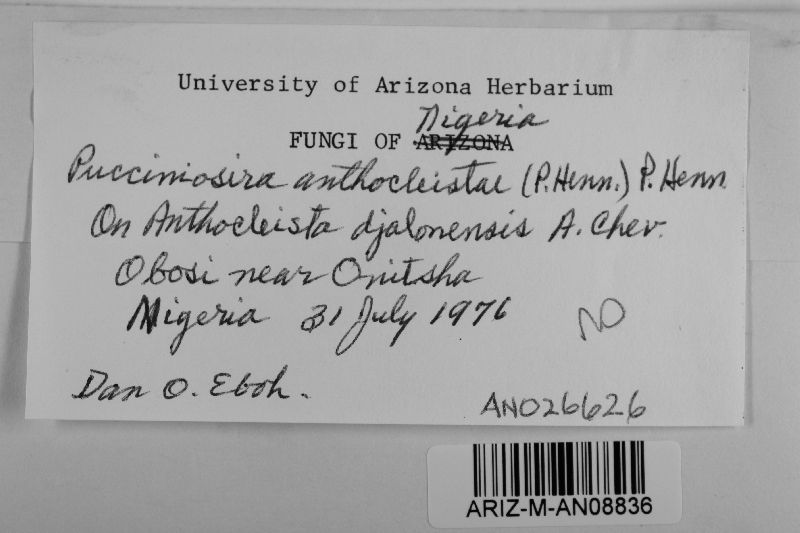 University of Arizona Herbarium
Nigeria
FUNGI OF ARIZONA
Pucciniosira anthocleistae (P. Henn.) P. Henn.
On Anthocleista djalonensis A. Chev.
Obosi near Onitsha
Nigeria 31 July 1976
NO
Dan O. Eboh.
AN026626
ARIZ-M-AN08836